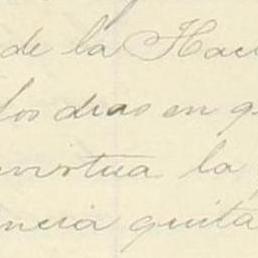 de la Hac
los dias en q
virtua la
ncia quita